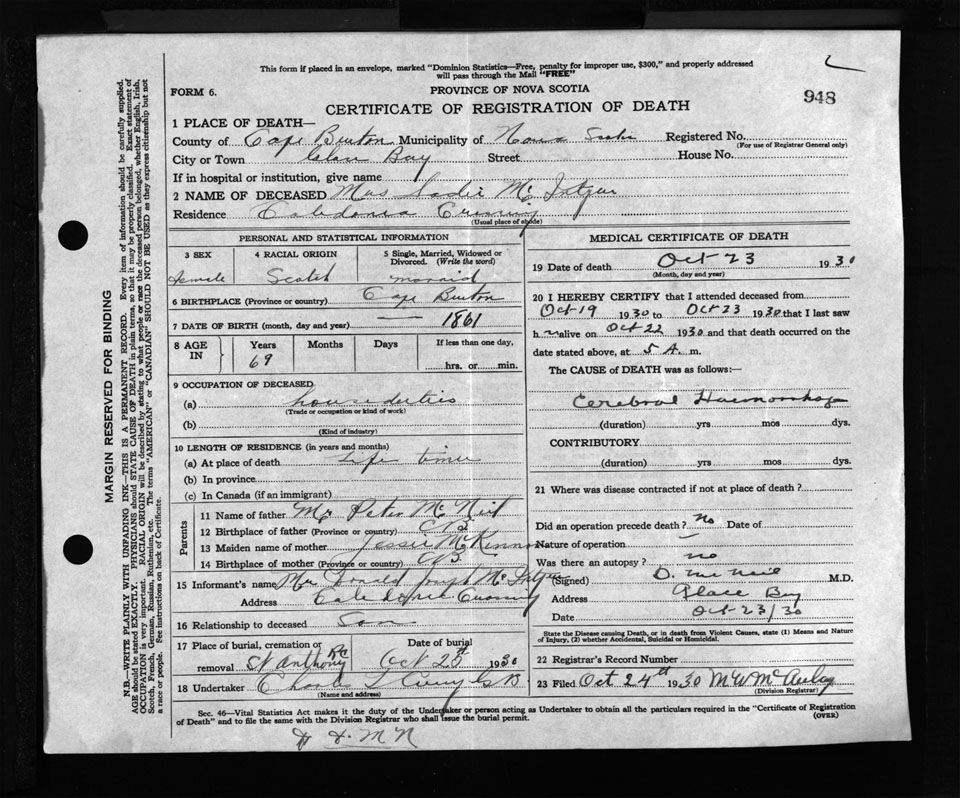 This form if placed in an envelope, marked "Dominion Statistics—Free, penalty for improper use, $300," and properly addressed
will pass through the Mail "FREE"
FORM 6.
PROVINCE OF NOVA SCOTIA
948
CERTIFICATE OF REGISTRATION OF DEATH
1 PLACE OF DEATH—
County of Cape Breton Municipality of Nova Scotia Registered No.
(For use of Registrar General only)
City or Town Glace Bay Street House No.
If in hospital or institution, give name
2 NAME OF DECEASED Mrs Sadie Mc
Residence Caledonia Crossing
(Usual place of abode)
PERSONAL AND STATISTICAL INFORMATION
3 SEX
4 RACIAL ORIGIN
5 Single, Married, Widowed or Divorced. (Write the word)
Female Scotch married
6 BIRTHPLACE (Province or country) Cape Breton
7 DATE OF BIRTH (month, day and year) — 1861
8 AGE IN
Years Months Days If less than one day,
69 hrs. or min.
9 OCCUPATION OF DECEASED
(a) house duties
(Trade or occupation or kind of work)
(b)
(Kind of industry)
10 LENGTH OF RESIDENCE (in years and months)
(a) At place of death Life time
(b) In province
(c) In Canada (if an immigrant)
Parents
11 Name of father Mr Peter McNeil
12 Birthplace of father (Province or country) CB
13 Maiden name of mother Jessie McKinnon
14 Birthplace of mother (Province or country) CB
15 Informant's name Donald Joseph Mc
Address Caledonia Crossing
16 Relationship to deceased Son
17 Place of burial, cremation or removal St Anthony RC
Date of burial Oct 25th 1930
18 Undertaker Charles
(Name and address)
MEDICAL CERTIFICATE OF DEATH
19 Date of death Oct 23 1930
(Month, day and year)
20 I HEREBY CERTIFY that I attended deceased from
Oct 19 1930 to Oct 23 1930 that I last saw
h er alive on Oct 22 1930 and that death occurred on
date stated above, at 5 A. m.
The CAUSE of DEATH was as follows:—
Cerebral Haemorrhage
(duration) yrs mos dys.
CONTRIBUTORY
(duration) yrs mos dys.
21 Where was disease contracted if not at place of death?
Did an operation precede death? No Date of
Nature of operation
Was there an autopsy? no
(Signed) D. McNeil M.D.
Address Glace Bay
Date Oct 23/30
State the Disease causing Death, or in death from Violent Causes, state (1) Means and Nature
of Injury, (2) whether Accidental, Suicidal or Homicidal.
22 Registrar's Record Number
23 Filed Oct 24th 1930 M W McAulay
(Division Registrar)
Sec. 46—Vital Statistics Act makes it the duty of the Undertaker or person acting as Undertaker to obtain all the particulars required in the "Certificate of Registration
of Death" and to file the same with the Division Registrar who shall issue the burial permit.
(OVER)
MARGIN RESERVED FOR BINDING
N.B.—WRITE PLAINLY WITH UNFADING INK—THIS IS A PERMANENT RECORD. Every item of information should be carefully supplied.
AGE should be stated EXACTLY. PHYSICIANS should STATE CAUSE OF DEATH in plain terms, so that it may be properly classified. Exact statement of
OCCUPATION is very important. RACIAL ORIGIN will be described by stating to what people or race the deceased person belonged, whether English, Irish,
Scotch, French, German, Russian, Ruthenian, etc. The terms "AMERICAN" or "CANADIAN" SHOULD NOT BE USED as they express citizenship but not
a race or people. See instructions on back of Certificate.